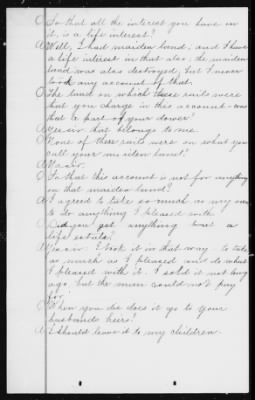 Q So that all the interest you have in
it, is a life interest?
A Well, I had maiden land, and I have
a life interest in that also; the maiden
land was also destroyed, but I never
took any account of that.
Q The land on which these rails were
that you charge in this account - was
that a part of your dower?
A Yes sir that belongs to me.
Q None of these rails were on what you
call your maiden land?
A No sir.
Q So that this account is not for anything
on that maiden land?
A I agreed to take so much as my own
to do anything I pleased with.
Q Did you get anything but a
life estate?
A Yes sir. I took it in that way - to take
as much as I pleased and do what
I pleased with it. I sold it not long
ago, but the man could not pay
for
Q When you die does it go to your
husbands heirs?
A I should leave it to my children.